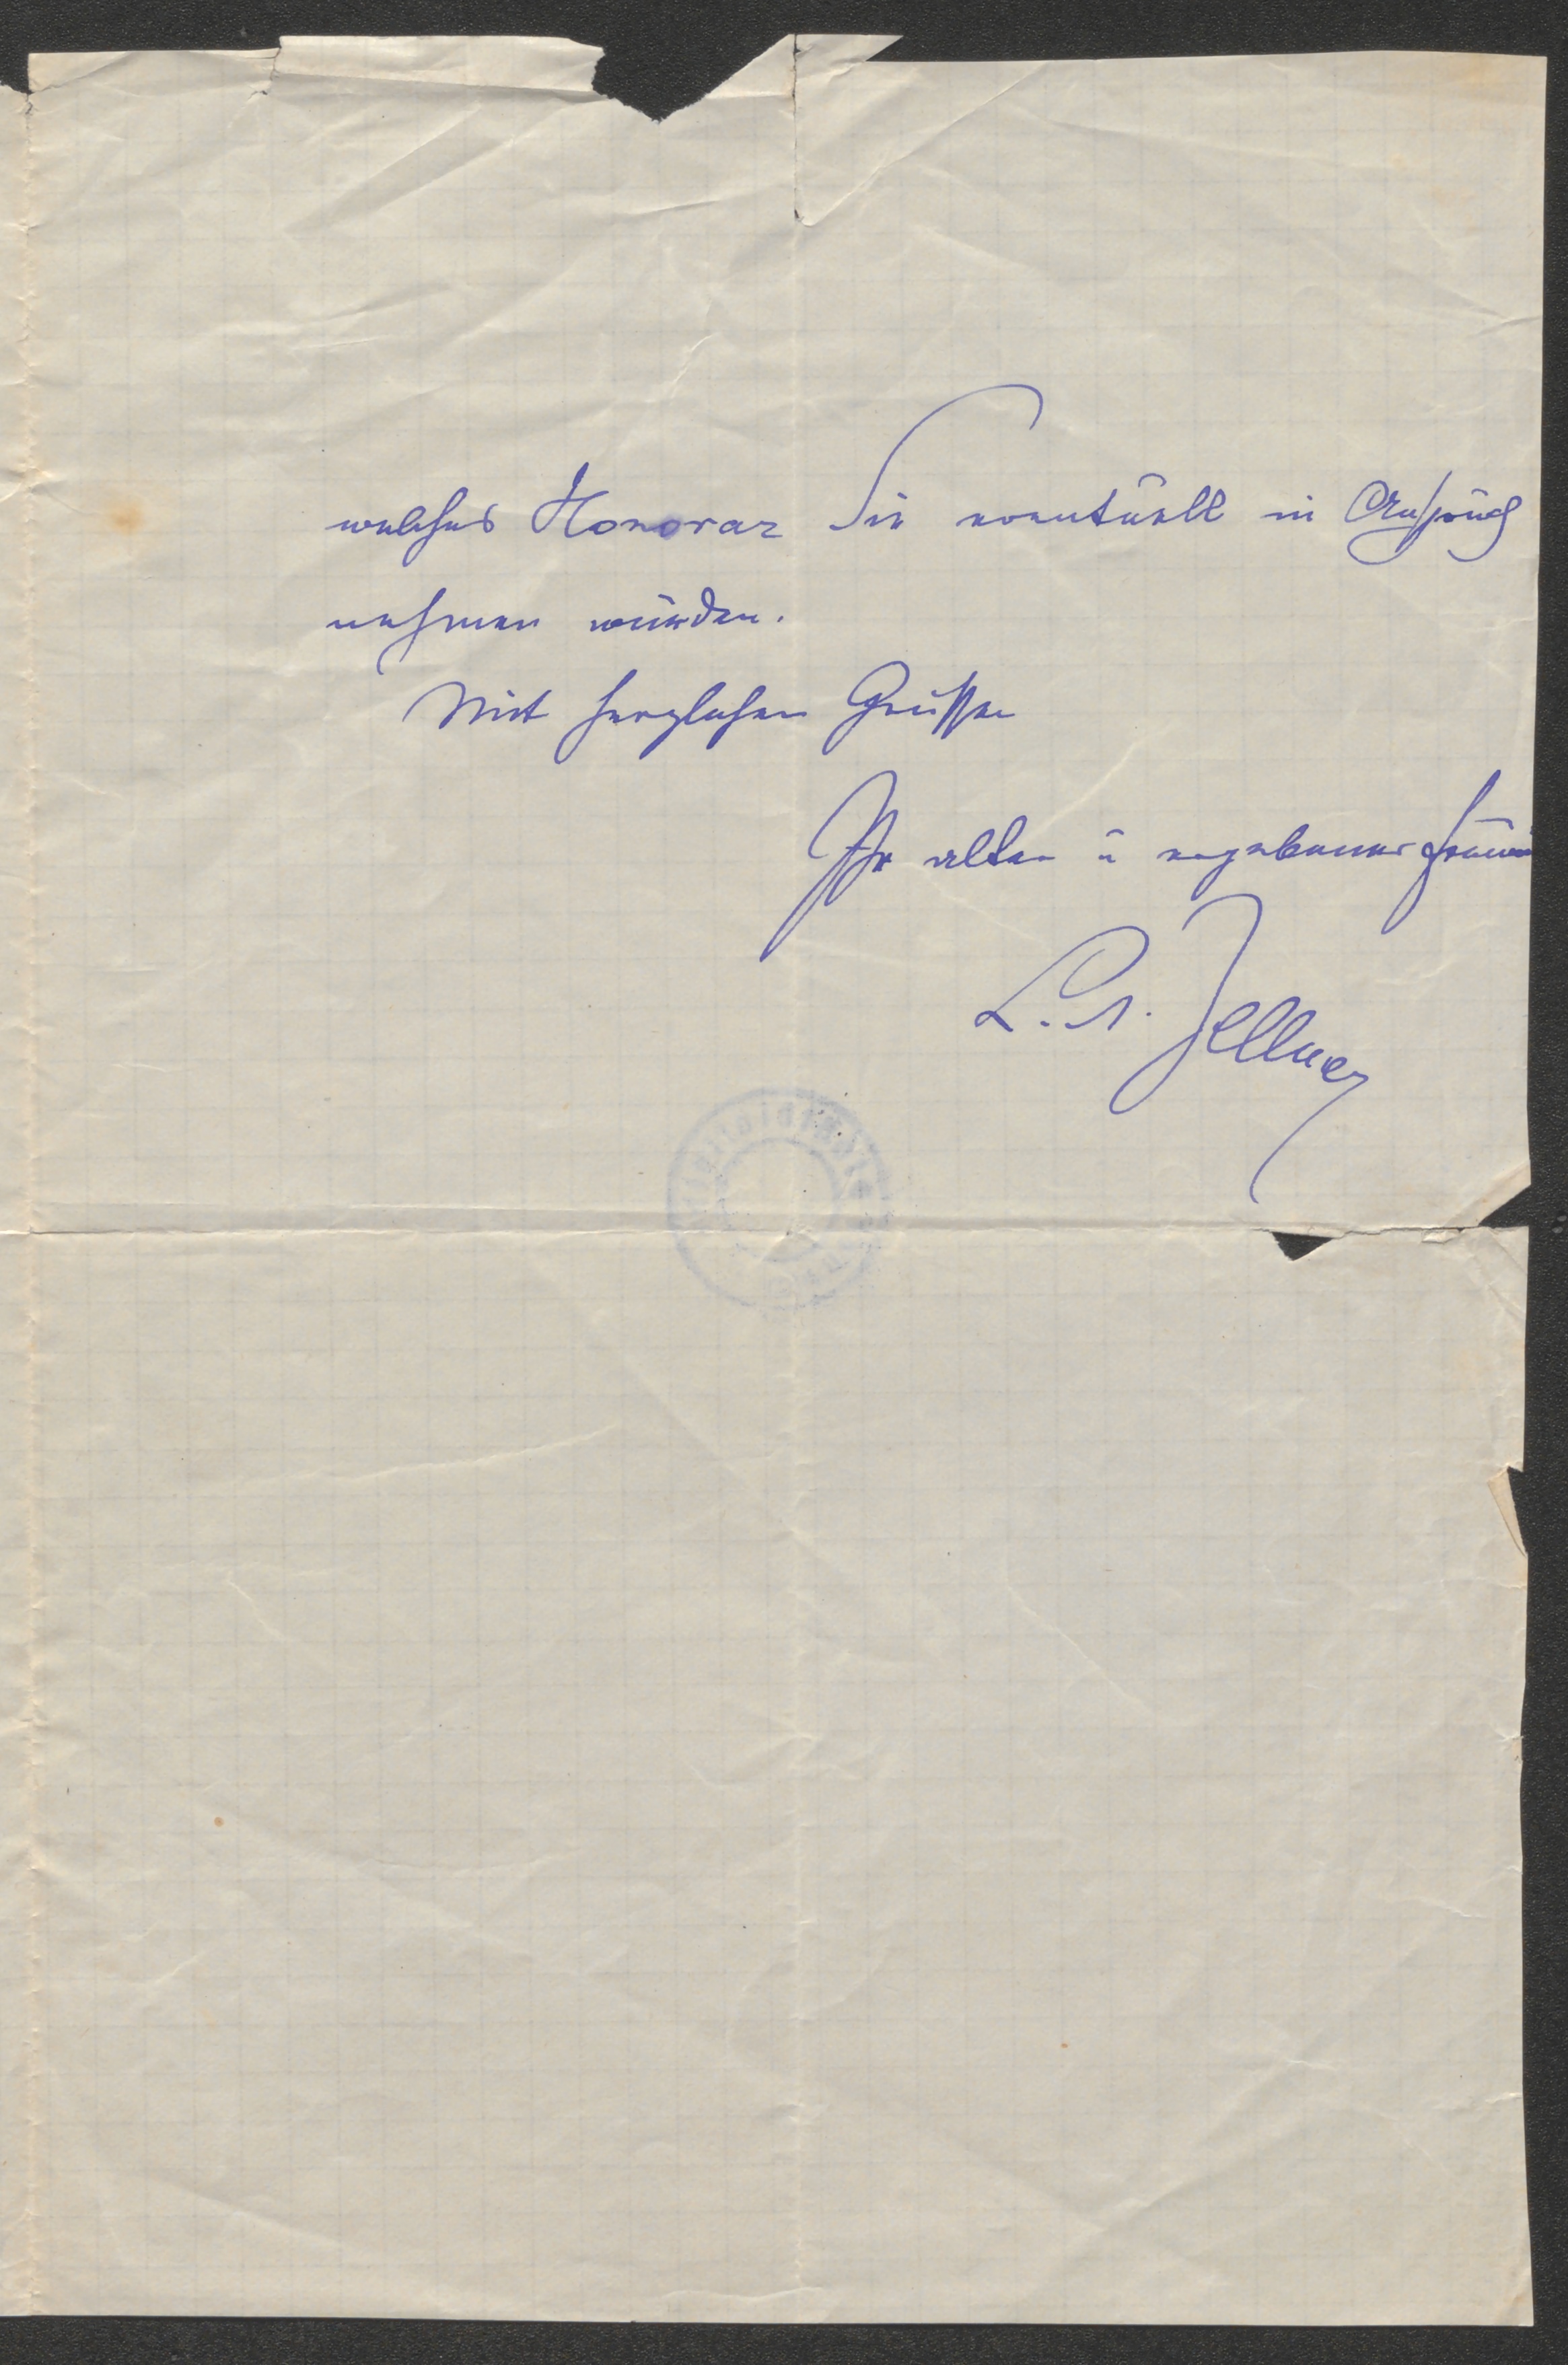 welches Honorar Sie eventuell in Anspruch
nehmen würden.
Mit herzlichen Grüssen
Ihr alter u ergebener Freund
L. A. Zellner